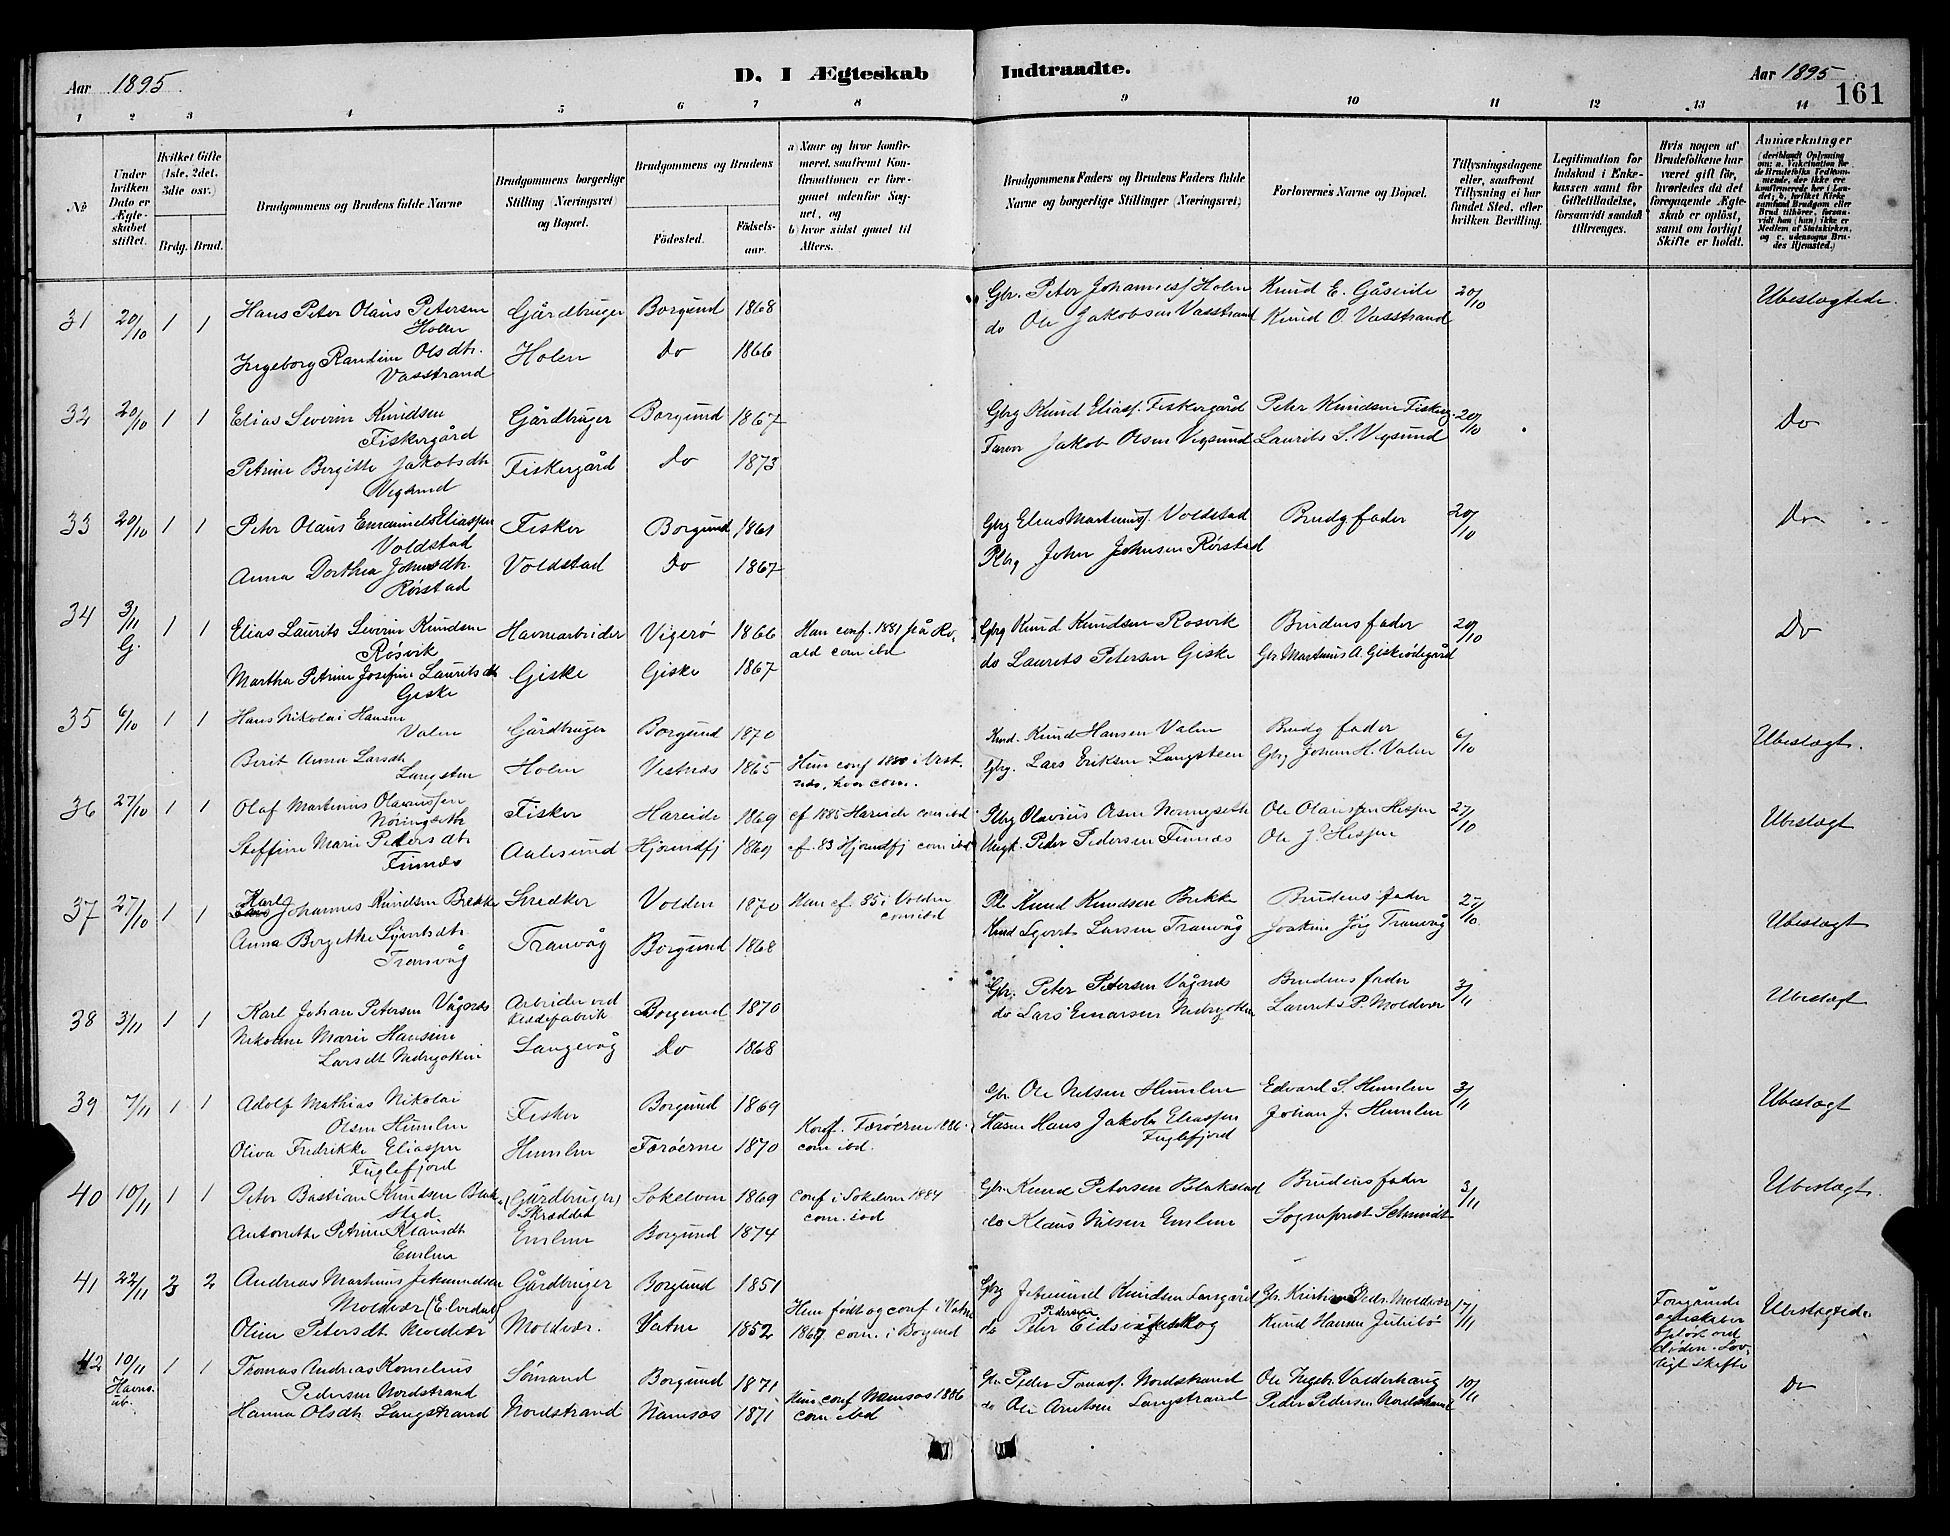 Aar 1895
D. I Ægteskab Indtraadte.
Aar 1895
161
1 2 3 4 5 6 7 8 9 10 11 12 13 14
№
Under hvilken Dato er Ægteskabet stiftet.
Hvilket Gifte (1ste, 2det, 3die osv.)
Brdg. Brud.
Brudgommens og Brudens fulde Navne
Brudgommens borgerlige Stilling (Næringsvei) og Bopæl.
Brudgommens og Brudens
Fødested.
Fødselsaar.
a) Naar og hvor konfirmeret, saafremt Konfirmationen er foregaaet udenfor Sognet, og
b) hvor sidst gaaet til Alters.
Brudgommens Faders og Brudens Faders fulde Navne og borgerlige Stillinger (Næringsvei)
Forlovernes Navne og Bopæl.
Tillysningsdagene eller, saafremt Tillysning ei har fundet Sted, efter hvilken Bevilling.
Legitimation for Indskud i Enkekassen samt for Giftetilladelse, forsaavidt saadan tiltrænges.
Hvis nogen af Brudefolkene har været gift før, hvorledes da det foregaaende Ægteskab er opløst, samt om lovligt Skifte er holdt.
Anmærkninger (deriblandt Oplysning om: a. Vakcination for de Brudefolks Vedkommende, der ikke ere konfirmerede her i Landet; b. hvilket Kirkesamfund Brudgom eller Brud tilhører, forsaavidt han (hun) ikke er Medlem af Statskirken, og c. udensogns Brudes Hjemsted.)
31 20/10 1 1 Hans Peter Olaus Petersen Gårdbruger Borgund 1868 Gbr. Peter Johanness. Holen Knud E. Gåseide 20/10 Ubeslægtede.
Holen do Ole Jakobsen Vasstrand Knud O. Vasstrand
Ingeborg Randine Olsdtr. Holen Do 1866
Vasstrand
32 20/10 1 1 Elias Severin Knudsen Gårdbruger Borgund 1867 Gbrg Knud Eliass. Fiskergård Peter Knudsen Fiskerg. 20/10 Do
Fiskergård Jakob Olsen Vegsund Laurits S. Vegsund
Petrine Bergitte Jakobsdtr Fiskergård Do 1873
Vegsund
33 20/10 1 1 Peter Olaus Emanuels Eliassen Fisker Borgund 1861 Gbrg Elias Martinuss. Voldstad Brudg fader 20/10 Do
Voldstad Plbrg John Johnsen Rørstad
Anna Dorthea Johnsdtr. Voldstad Do 1867
Rørstad
34 3/11 G. 1 1 Elias Laurits Severin Knudsen Havnearbeider Vigerø 1866 Han conf. 1881 på Ro- Gbrg Knud Knudsen Rosvik Brudens fader 20/10 Do
Røsvik ald com ibd do Laurits Petersen Giske Gbr Martinus A. Giskeødegård
Martha Petrine Josefine Lauritsdtr Giske Giske 1867
Giske
35 6/10 1 1 Hans Nikolai Hansen Gårdbruger Borgund 1870 Knud Hansen Valen Brudg fader 6/10 Ubeslægt.
Valen
Berit Anna Larsdtr Holen Vestnæs 1865 Hun conf 1880 i Vest- Gbrg. Lars Eriksen Langsteen Gbrg Johan H. Valen
Langsten næs, hvor com.
36 27/10 1 1 Olaf Martinus Olavussen Fisker Hareide 1869 cf 1885 Hareide com ibd Plbrg Olavius Olsen Nøringseth Ole Olaussen Hessen 27/10 Ubeslægt
Nøringseth
Steffine Marie Pedersdtr Aalesund Hjørundfj 1869 cf. 83 Hjørundfj com ibd Peder Pedersen Finnæs Ole J. Hessen
Finnæs
37 27/10 1 1 Karl Johannes Knudsen Brekke Snedker Volden 1870 Han cf. 85 i Volden Pl. Knud Knudsen Brekke Brudens fader 27/10 Ubeslægt
com ibd
Anna Bergethe Syvertsdtr Tranvåg Borgund 1868 Lars Larsen Tranvåg Joakim Jörg Tranvåg
Tranvåg
38 3/11 1 1 Karl Johan Petersen Vågnæs Arbeider ved Borgund 1870 Gbr. Peter Petersen Vågnæs Brudens fader 3/11 Ubeslægt
Kledefabrik
Nikoline Marie Hansine Langevåg Do 1868 do Lars Laurits P. Moldvær
Larsdt
39 7/11 1 1 Adolf Mathias Nikolai Fisker Borgund 1869 Gbr. Ole Nilsen Humlen Edvard S. Humlen 3/11 Ubeslægt
Olsen Humlen Hans Jakob Eliassen Johan J. Humlen
Oliva Fredrikke Eliassen Humlen Færøerne 1870 Konf. Færøerne 1886. Fuglefjord
Fuglefjord com ibd.
40 10/11 1 1 Peter Bastian Knudsen Blak- (Gårdbruger) Sokelven 1869 conf i Sokelven 1884 Gbr. Knud Petersen Blakstad Brudens fader 3/11 Ubeslægt.
stad Skrædder com. ibd
Antonethe Petrine Klausdt Emlem Borgund 1874 do Klaus Nilsen Emlem Sogneprest Schmidt
Emlem
41 22/11 3 2 Andreas Martinus Johannes Gårdbruger Borgund 1851 Gbrg Knudsen Gr. Kristian Peders. Moldvær 17/11 Forgående Ubeslægtede
Moldvær Hun født og conf i Vatne Pedersen ægteskaber
Oline Petersdt Moldvær Moldvær. Vatne 1852 1867 com. i Borgund do Peter Eidsvikskog Knud Hansen opløst ved
døden. Lov-
ligt skifte
42 10/11 1 1 Thomas Andreas Kornelius Sömand Borgund 1871 Gbr Peder Nordstrand Ole Ingebr. Valderhaug 10/11 Do
Pedersen Nordstrand Hun conf Namsos 1886
Hanna Olsdtr Langstrand Nordstrand Namsos 1871 com ibd do Ole Arntsen Langstrand Peder Pedersen Nordstrand